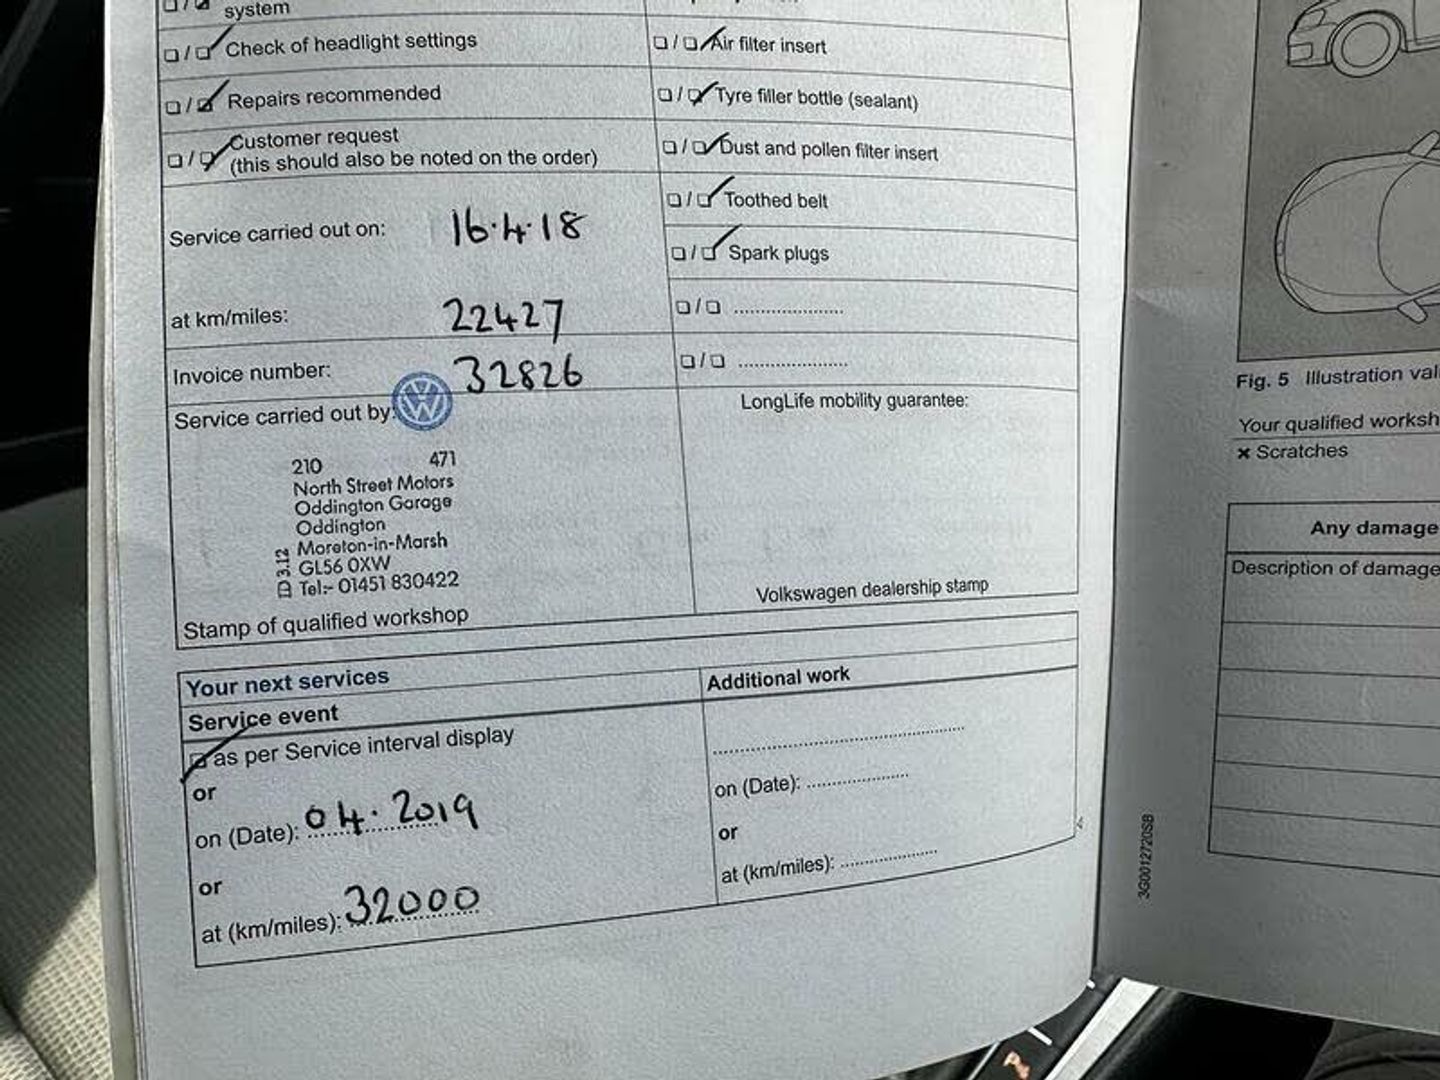 system
Check of headlight settings
Repairs recommended
Customer request
(this should also be noted on the order)
Service carried out on: 16.4.18
at km/miles: 22427
Invoice number: 32826
Service carried out by:
210 471
North Street Motors
Oddington Garage
Oddington
Moreton-in-Marsh
GL56 0XW
Tel:- 01451 830422
3.12
Stamp of qualified workshop
Air filter insert
Tyre filler bottle (sealant)
Dust and pollen filter insert
Toothed belt
Spark plugs
LongLife mobility guarantee:
Volkswagen dealership stamp
Your next services
Service event
as per Service interval display
or
on (Date): 04.2019
or
at (km/miles): 32000
Additional work
on (Date):
or
at (km/miles):
Fig. 5 Illustration val
Your qualified worksh
× Scratches
Any damage
Description of damage
3G0012720SB